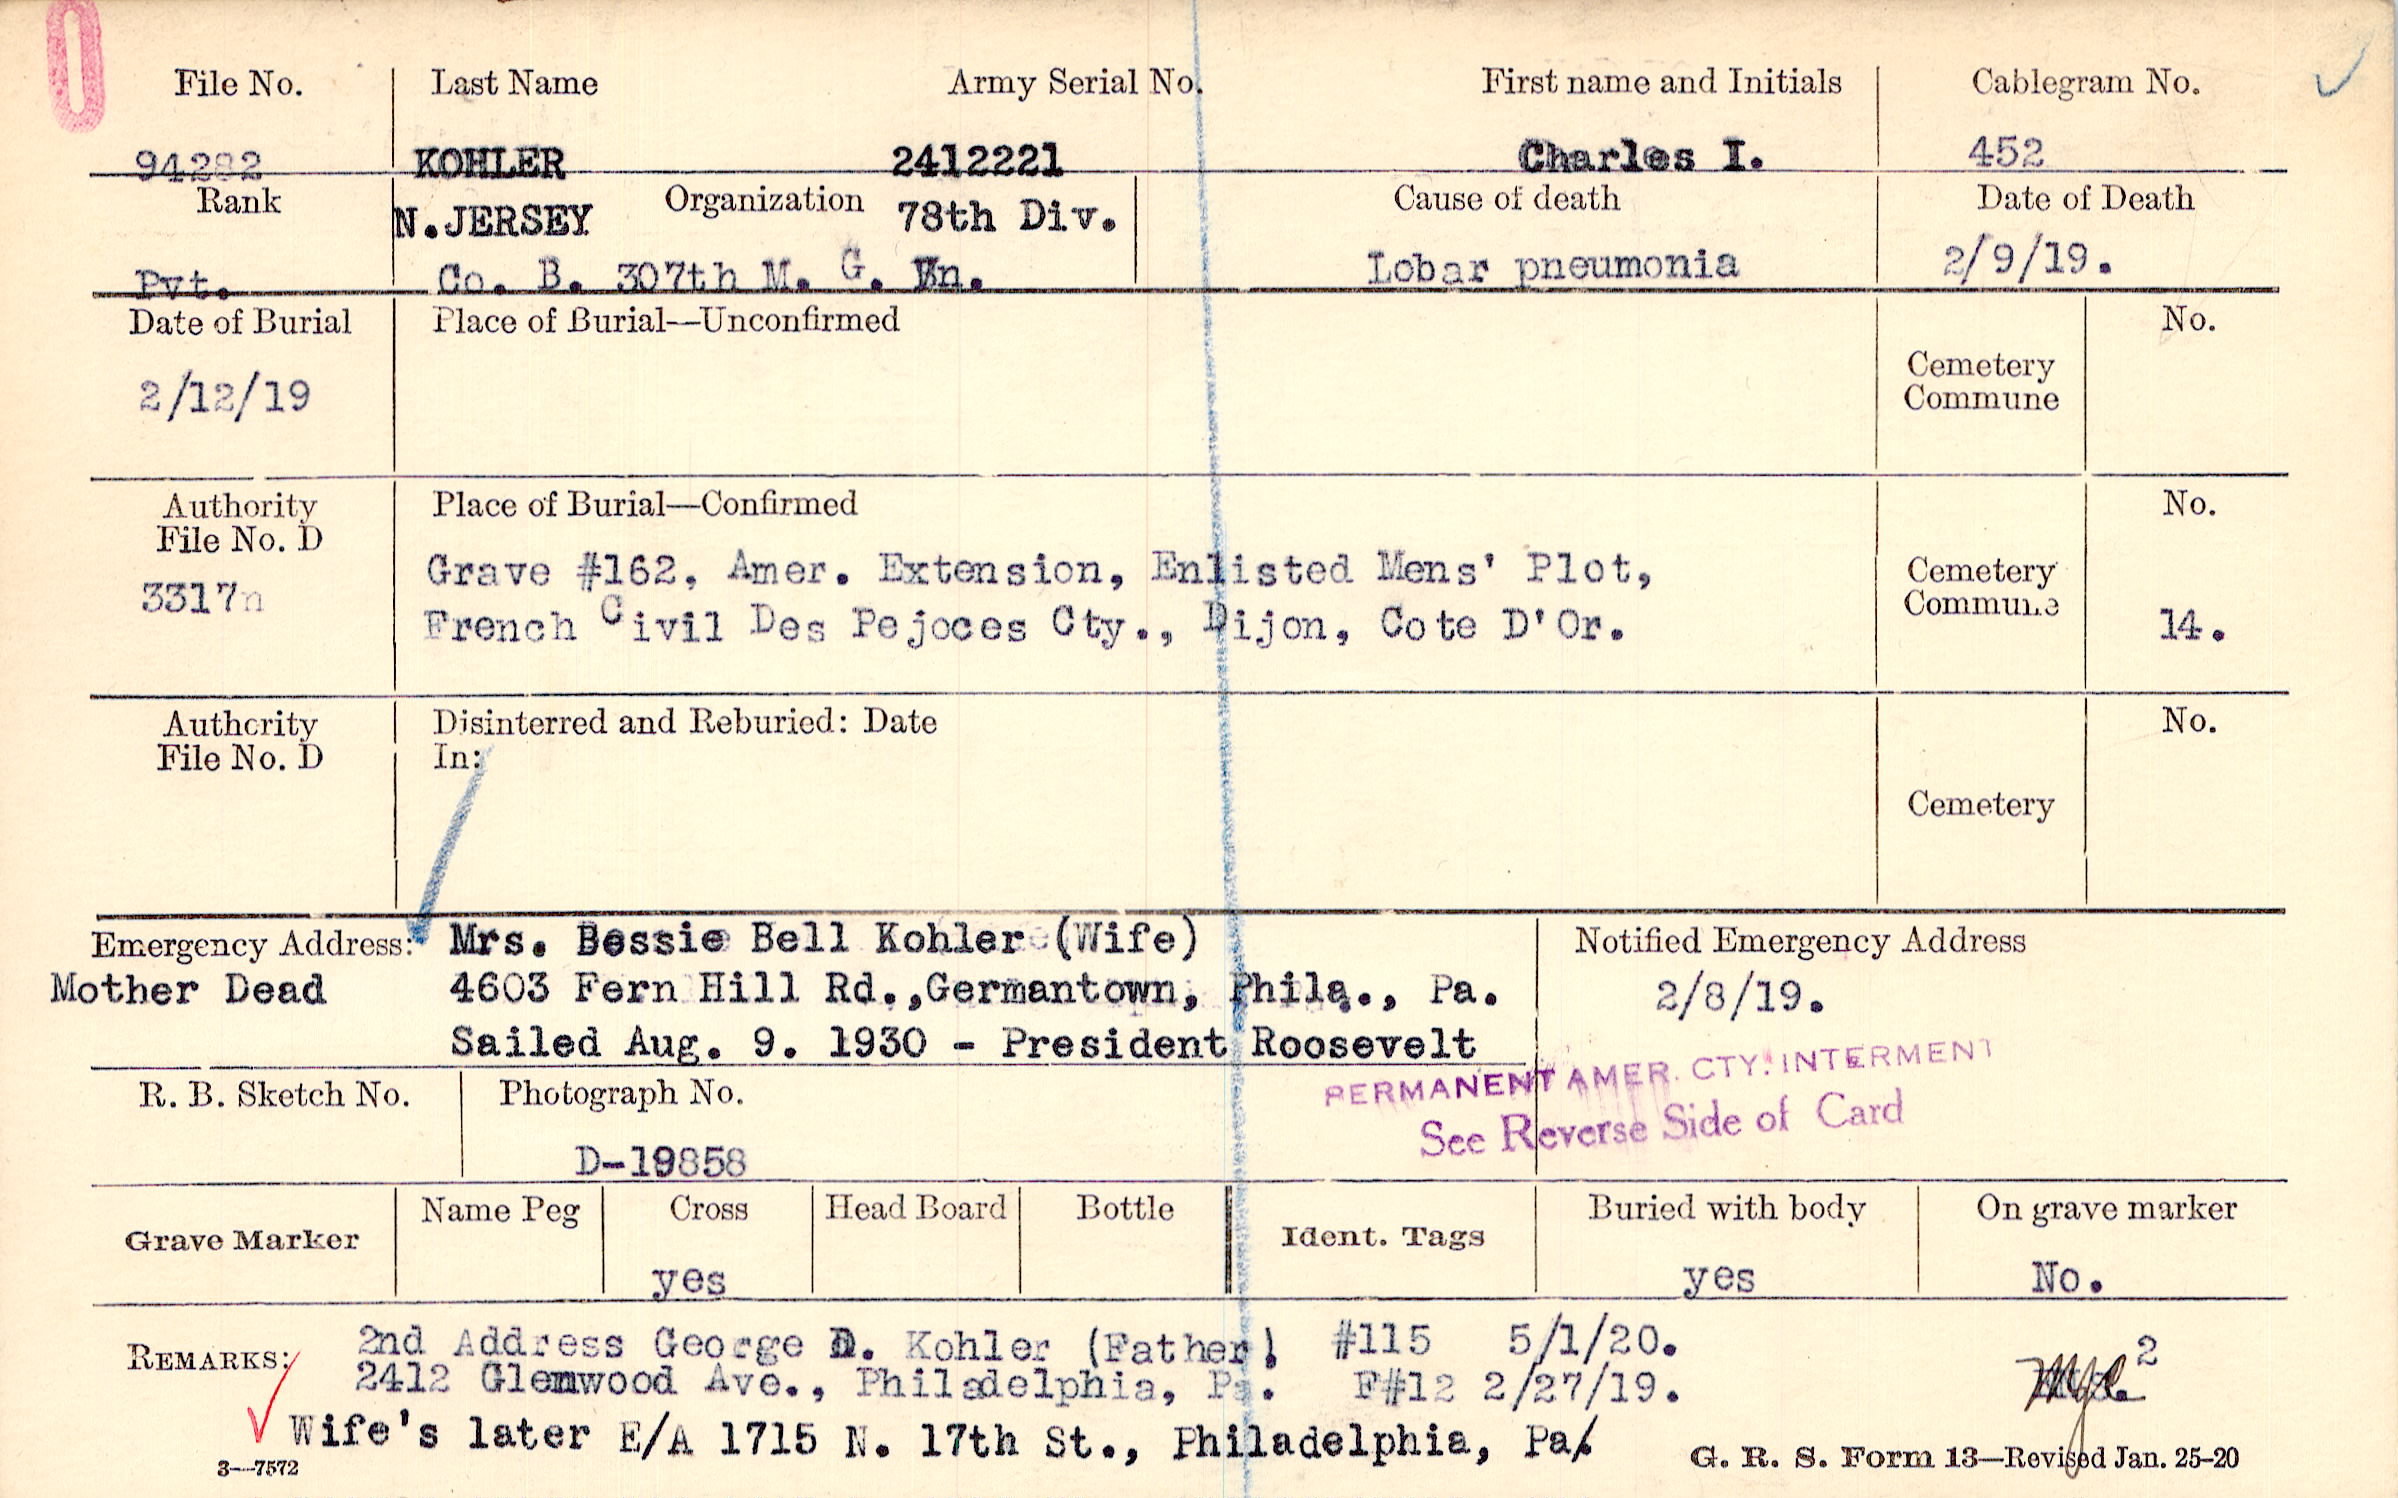 File No. Last Name Army Serial No. First name and Initials Cablegram No.
94282 KOHLER 2412221 Charles I. 452
Rank N.JERSEY Organization 78th Div. Cause of death Date of Death
Pvt. Co. B. 307th M. G. Bn. Lobar pneumonia 2/9/19.
Date of Burial Place of Burial—Unconfirmed No.
2/12/19 Cemetery
Commune
Authority Place of Burial—Confirmed No.
File No. D
3317n Grave #162, Amer. Extension, Enlisted Mens' Plot, Cemetery
French Civil Des Pejoces Cty., Dijon, Cote D'Or. Commune 14.
Authority Disinterred and Reburied: Date No.
File No. D In:
Cemetery
Emergency Address: Mrs. Bessie Bell Kohler (Wife) Notified Emergency Address
Mother Dead 4603 Fern Hill Rd.,Germantown, Phila., Pa. 2/8/19.
Sailed Aug. 9. 1930 - President Roosevelt
PERMANENT AMER. CTY. INTERMENT
R. B. Sketch No. Photograph No. See Reverse Side of Card
D-19858
Grave Marker Name Peg Cross Head Board Bottle Ident. Tags Buried with body On grave marker
yes yes No.
REMARKS: 2nd Address George D. Kohler (Father) #115 5/1/20. 2
2412 Glenwood Ave., Philadelphia, Pa. F#12 2/27/19.
Wife's later E/A 1715 N. 17th St., Philadelphia, Pa.
3—7572 G. R. S. Form 13—Revised Jan. 25-20